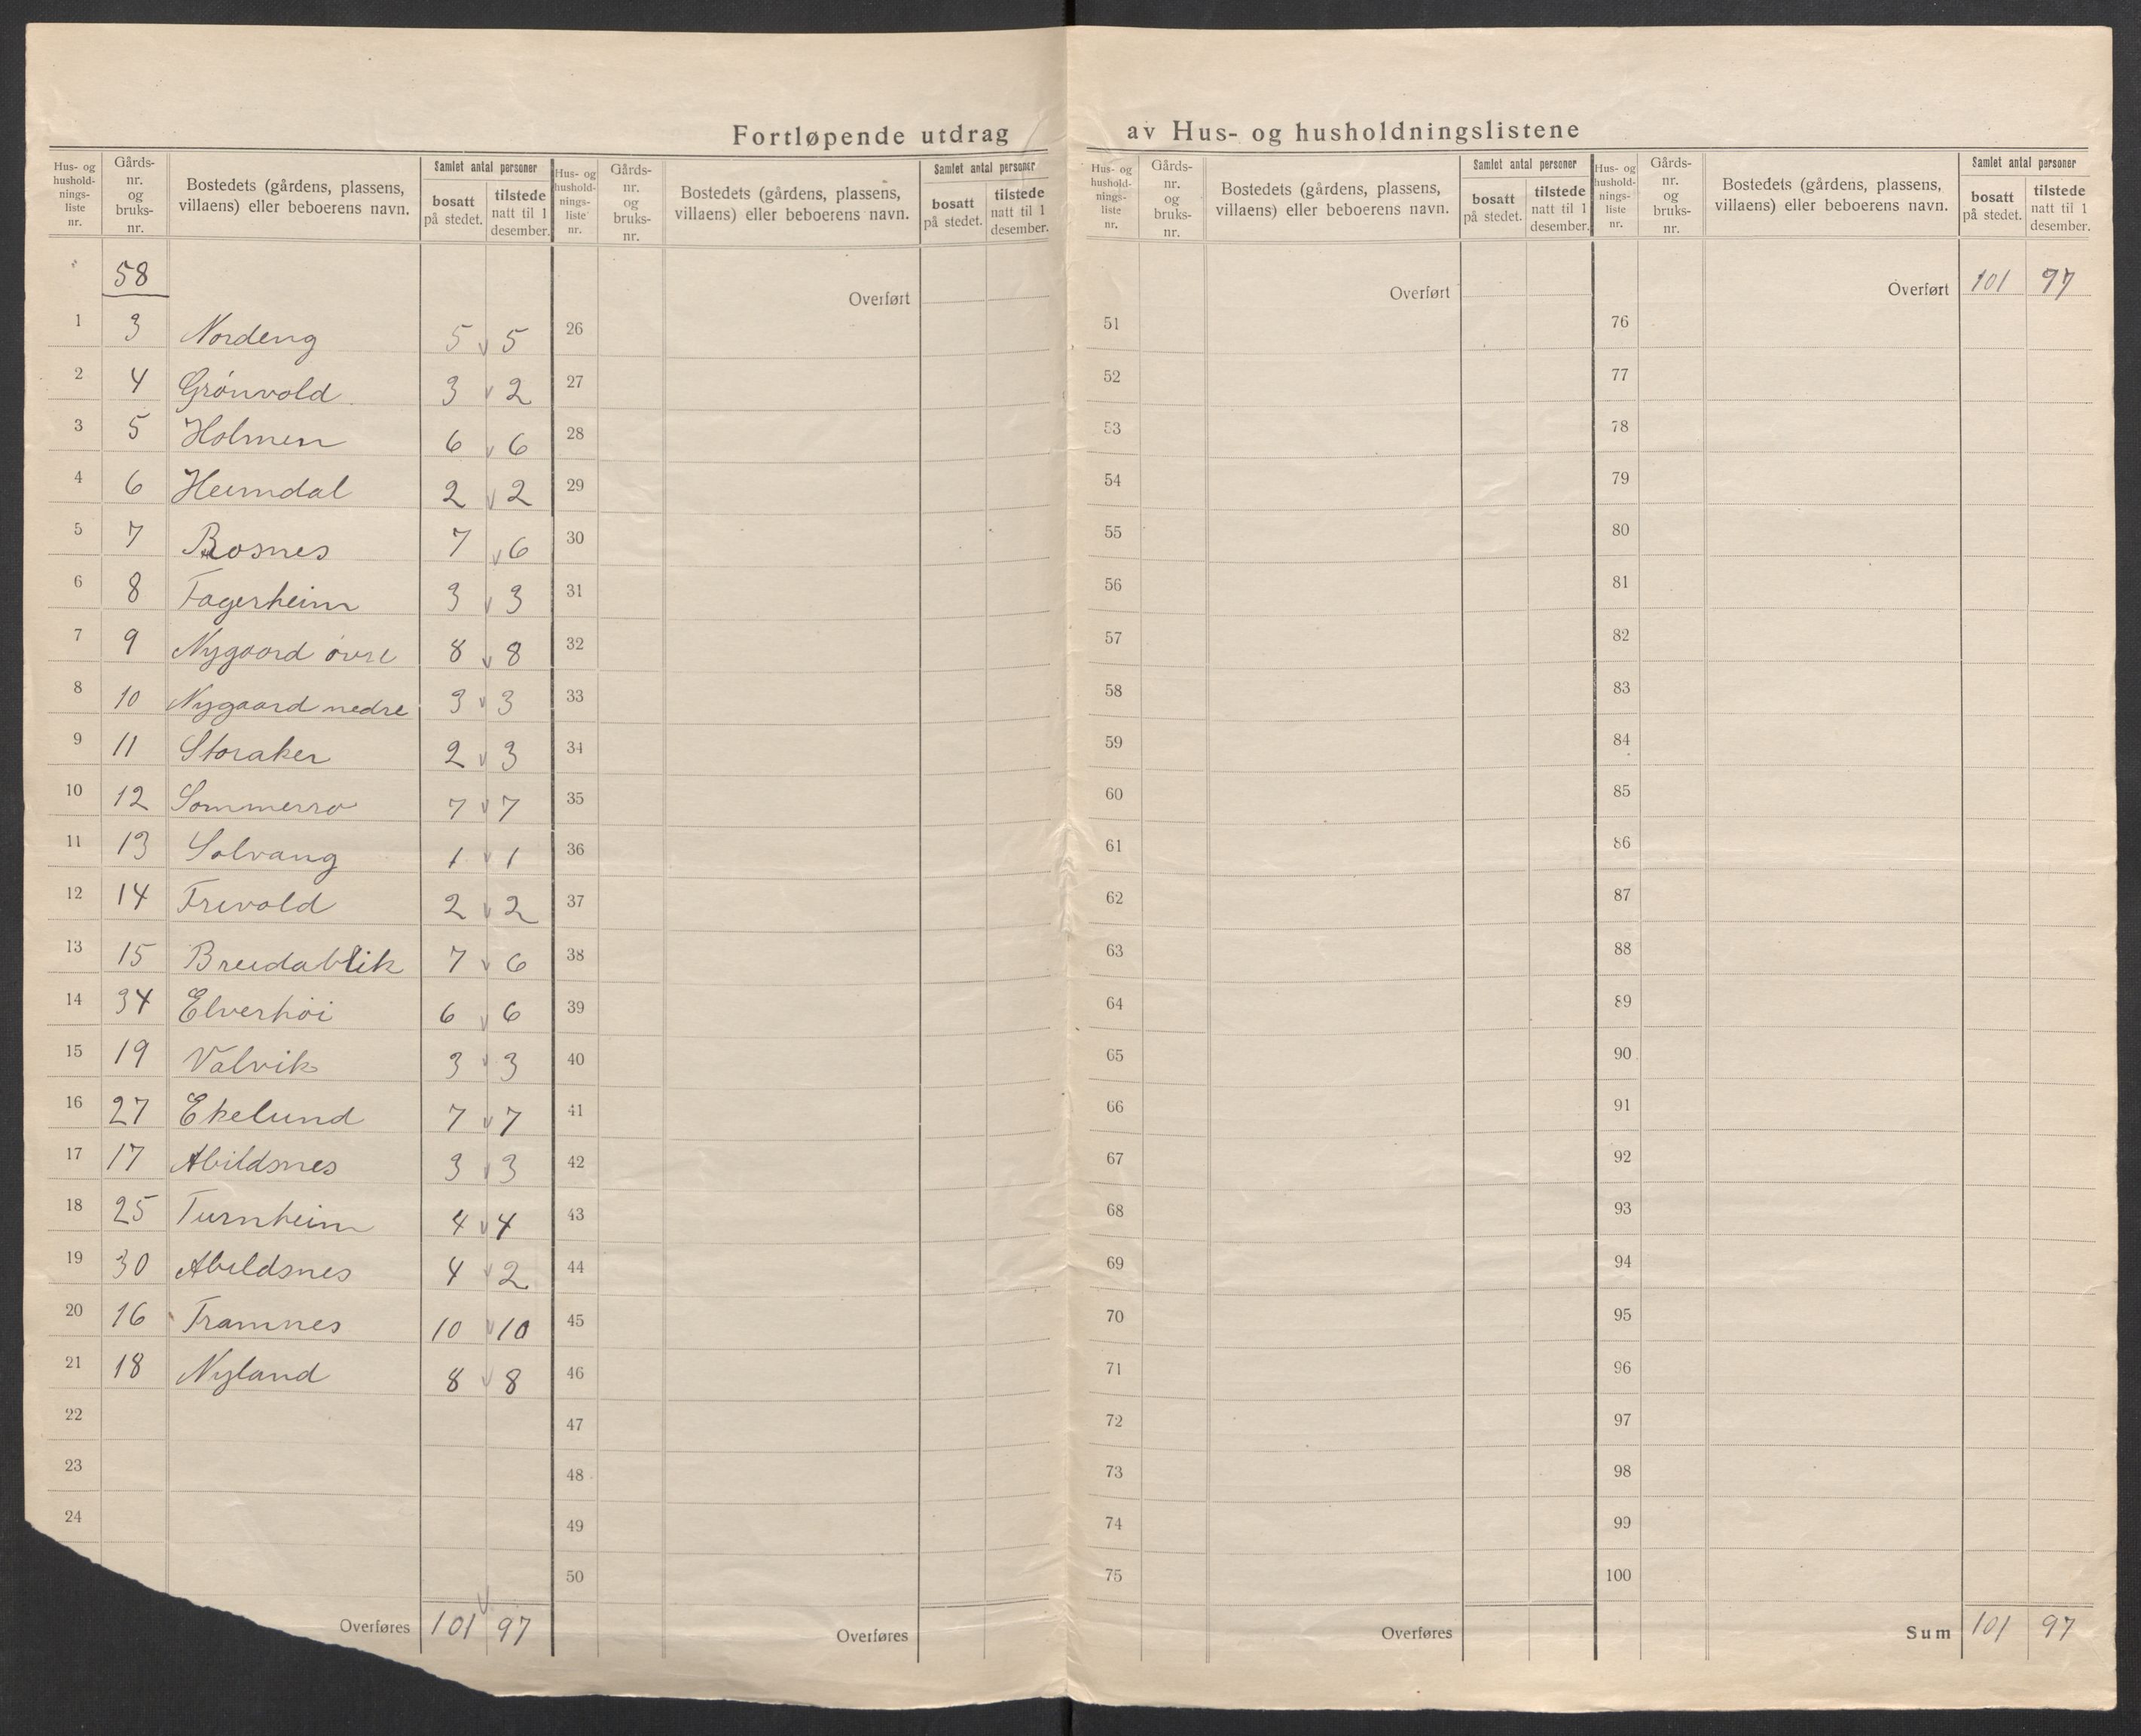 Fortløpende utdrag av Hus- og husholdningslistene
Hus- og hushold- nings- liste nr. | Gårds- nr. og bruks- nr. | Bostedets (gårdens, plassens, villaens) eller beboerens navn. | Samlet antal personer | bosatt på stedet. | tilstede natt til 1 desember.
58
1 3 Nordeng 5 v 5
2 4 Grönvold 3 v 2
3 5 Holmen 6 v 6
4 6 Heimdal 2 v 2
5 7 Rosnes 7 v 6
6 8 Fagerheim 3 v 3
7 9 Nygaard övre 8 v 8
8 10 Nygaard nedre 3 v 3
9 11 Storaker 2 v 3
10 12 Sommerro 7 v 7
11 13 Solvang 1 v 1
12 14 Trevold 2 v 2
13 15 Breidablik 7 v 6
14 34 Elverhöi 6 v 6
15 19 Valvik 3 v 3
16 27 Ekelund 7 v 7
17 17 Abildsnes 3 v 3
18 25 Turnheim 4 v 4
19 30 Abildsnes 4 v 2
20 16 Framnes 10 v 10
21 18 Nyland 8 v 8
22
23
24
Overføres 101 v 97
Hus- og hushold- nings- liste nr. | Gårds- nr. og bruks- nr. | Bostedets (gårdens, plassens, villaens) eller beboerens navn. | Samlet antal personer | bosatt på stedet. | tilstede natt til 1 desember.
Overført
26
27
28
29
30
31
32
33
34
35
36
37
38
39
40
41
42
43
44
45
46
47
48
49
50
Overføres
Hus- og hushold- nings- liste nr. | Gårds- nr. og bruks- nr. | Bostedets (gårdens, plassens, villaens) eller beboerens navn. | Samlet antal personer | bosatt på stedet. | tilstede natt til 1 desember.
Overført
51
52
53
54
55
56
57
58
59
60
61
62
63
64
65
66
67
68
69
70
71
72
73
74
75
Overføres
Hus- og hushold- nings- liste nr. | Gårds- nr. og bruks- nr. | Bostedets (gårdens, plassens, villaens) eller beboerens navn. | Samlet antal personer | bosatt på stedet. | tilstede natt til 1 desember.
Overført 101 97
76
77
78
79
80
81
82
83
84
85
86
87
88
89
90
91
92
93
94
95
96
97
98
99
100
Sum 101 97